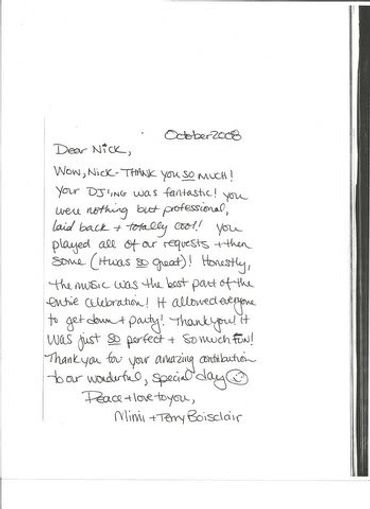 October 2008
Dear Nick,
Wow, Nick - THANK you so much!
Your DJ'ing was fantastic! You
were nothing but professional,
laid back + totally cool! You
played all of our requests + then
some (it was so great)! Honestly,
the music was the best part of the
entire celebration! It allowed everyone
to get down + party! Thank you! It
was just so perfect + so much fun!
Thank you for your amazing contribution
to our wonderful, special day ☺
Peace + love to you,
Mimi + Terry Boisclair